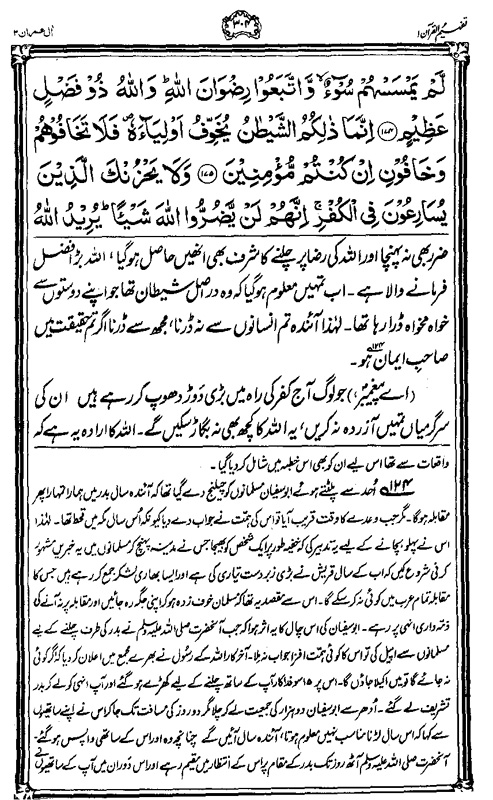 تفہیم القرآن ۱
۳۰۴
اٰل عمران ۳
لَّمْ يَمْسَسْهُمْ سُوْٓءٌ ۙ وَّاتَّبَعُوْا رِضْوَانَ اللّٰهِ ؕ وَاللّٰهُ ذُوْ فَضْلٍ
عَظِيْمٍ ﴿۱۷۴﴾ اِنَّمَا ذٰلِكُمُ الشَّيْطٰنُ يُخَوِّفُ اَوْلِيَآءَهٗ ۪ فَلَا تَخَافُوْهُمْ
وَخَافُوْنِ اِنْ كُنْتُمْ مُّؤْمِنِيْنَ ﴿۱۷۵﴾ وَلَا يَحْزُنْكَ الَّذِيْنَ
يُسَارِعُوْنَ فِي الْكُفْرِ ۚ اِنَّهُمْ لَنْ يَّضُرُّوا اللّٰهَ شَيْـًٔا ؕ يُرِيْدُ اللّٰهُ
ضرر بھی نہ پہنچا اور اللہ کی رضا پر چلنے کا شرف بھی انھیں حاصل ہو گیا، اللہ بڑا فضل
فرمانے والا ہے۔ اب تمہیں معلوم ہو گیا کہ وہ دراصل شیطان تھا جو اپنے دوستوں سے
خواہ مخواہ ڈرا رہا تھا۔ لہٰذا آئندہ تم انسانوں سے نہ ڈرنا، مجھ سے ڈرنا اگر تم حقیقت میں
صاحبِ ایمان ہو۔ ۱۲۴
(اے پیغمبرؐ) جو لوگ آج کفر کی راہ میں بڑی دَوڑ دھوپ کر رہے ہیں ان کی
سرگرمیاں تمہیں آزردہ نہ کریں، یہ اللہ کا کچھ بھی نہ بگاڑ سکیں گے۔ اللہ کا ارادہ یہ ہے کہ
واقعات سے تھا اس لیے ان کو بھی اس خطبہ میں شامل کر دیا گیا۔
۱۲۴ اُحد سے پلٹتے ہوئے ابوسفیان مسلمانوں کو چیلنج دے گیا تھا کہ آئندہ سال بدر میں ہمارا تمہارا پھر
مقابلہ ہوگا۔ مگر جب وعدے کا وقت قریب آیا تو اس کی ہمت نے جواب دے دیا کیونکہ اُس سال مکہ میں قحط تھا۔ لہٰذا
اس نے پہلو بچانے کے لیے یہ تدبیر کی کہ خفیہ طور پر ایک شخص کو بھیجا جس نے مدینہ پہنچ کر مسلمانوں میں یہ خبریں مشہور
کرنی شروع کیں کہ اب کے سال قریش نے بڑی زبردست تیاری کی ہے اور ایسا بھاری لشکر جمع کر رہے ہیں جس کا
مقابلہ تمام عرب میں کوئی نہ کر سکے گا۔ اس سے مقصد یہ تھا کہ مسلمان خوف زدہ ہو کر اپنی جگہ رہ جائیں اور مقابلہ پر نہ آنے کی
ذمہ داری انہی پر رہے۔ ابوسفیان کی اس چال کا یہ اثر ہوا کہ جب آنحضرت صلی اللہ علیہ وسلم نے بدر کی طرف چلنے کے لیے
مسلمانوں سے اپیل کی تو اس کا کوئی ہمت افزا جواب نہ ملا۔ آخر کار اللہ کے رسول نے بھرے مجمع میں اعلان کر دیا کہ اگر کوئی
نہ جائے گا تو میں اکیلا جاؤں گا۔ اس پر ۱۵ سو فدا کار آپ کے ساتھ چلنے کے لیے کھڑے ہو گئے اور آپ انہی کو لے کر بدر
تشریف لے گئے۔ اُدھر سے ابوسفیان دو ہزار کی جمعیت لے کر چلا مگر دو روز کی مسافت تک جا کر اس نے اپنے ساتھیوں
سے کہا کہ اس سال لڑنا مناسب نہیں معلوم ہوتا، آئندہ سال آئیں گے چنانچہ وہ اور اس کے ساتھی واپس ہو گئے۔
آنحضرت صلی اللہ علیہ وسلم آٹھ روز تک بدر کے مقام پر اس کے انتظار میں مقیم رہے اور اس دوران میں آپ کے ساتھیوں نے